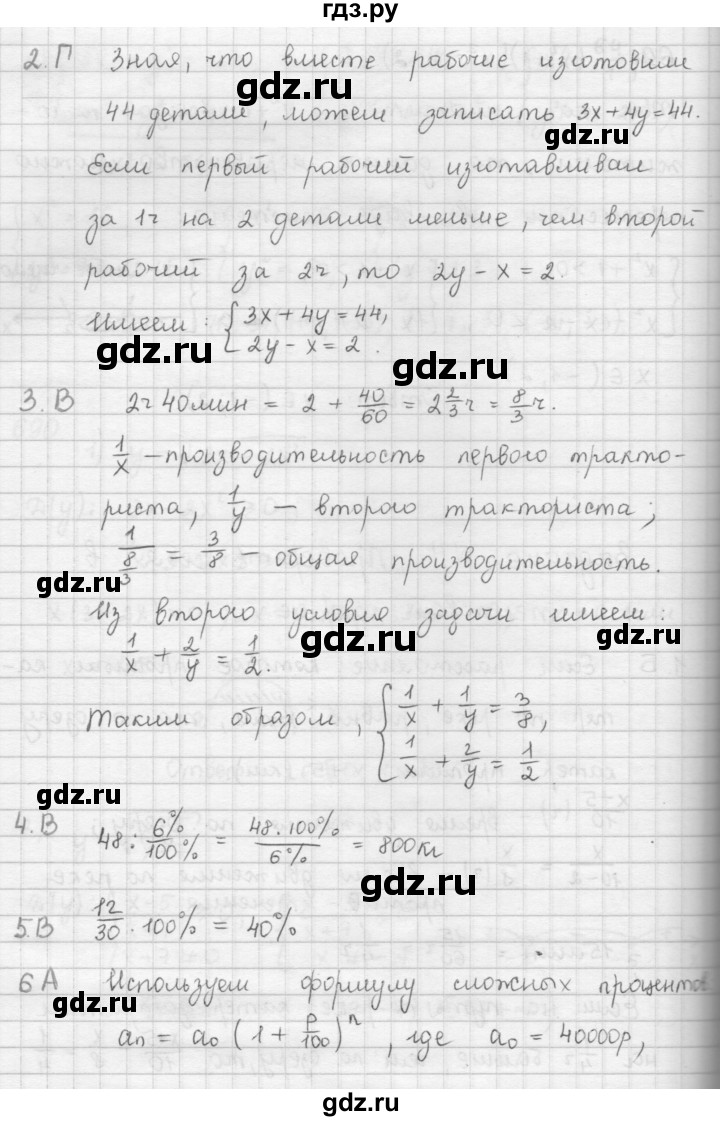 гдз.ру
2.Г Зная, что вместе рабочие изготовили
gdz.ru gdz.ru
44 детали, можем записать 3x+4y=44.
gdz.ru
Если первый рабочий изготавливал
за 1ч на 2 детали меньше, чем второй
рабочий за 2ч, то 2y-x=2.
Имеем: {3x+4y=44,
2y-x=2.
gdz.ru gdz.ru
3.В 2ч 40мин = 2 + 40/60 = 2 2/3 ч = 8/3 ч.
1/x - производительность первого тракто-
gdz.ru
риста, 1/y - второго тракториста;
1/(8/3) = 3/8 - общая производительность.
gdz.ru
Из второго условия задачи имеем:
gdz.ru gdz.ru
1/x + 2/y = 1/2.
Таким образом, {1/x + 1/y = 3/8,
1/x + 2/y = 1/2,
gdz.ru
4.В 48 : 6%/100% = 48·100%/6% = 800кг
gdz.ru gdz.ru
5.В 12/30 · 100% = 40%
gdz.ru
6А Используем формулу сложных процентов
gdz.ru
an = a0 (1 + p/100)^n, где a0 = 40000р,
gdz.ru gdz.ru
гдз.ру